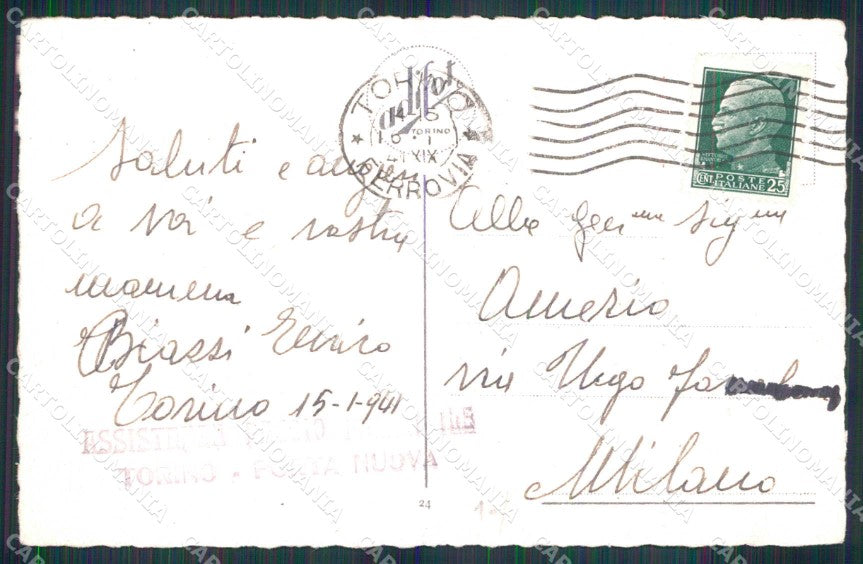 Saluti e auguri
a voi e vostra
mamma
Biassi Enrico
Torino 15-1-941
ASSISTENZA
TORINO - PORTA NUOVA
TORINO
FERROVIA
41 XIX
TORINO
POSTE
ITALIANE
CENT 25
Alla Gen.ma Sig.na
Amerio
via Ugo
Milano
24
CARTOLINOMANIA